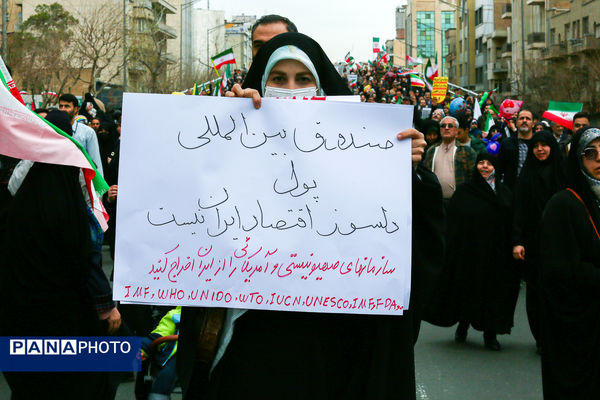 صندوق بین المللی
پول
دلسوز اقتصاد ایران نیست
سازمانهای صهیونیستی و آمریکائی را از ایران اخراج کنید
IMF, WHO, UNIDO, WTO, IUCN, UNESCO, IMF, FDA, و...
PANAPHOTO